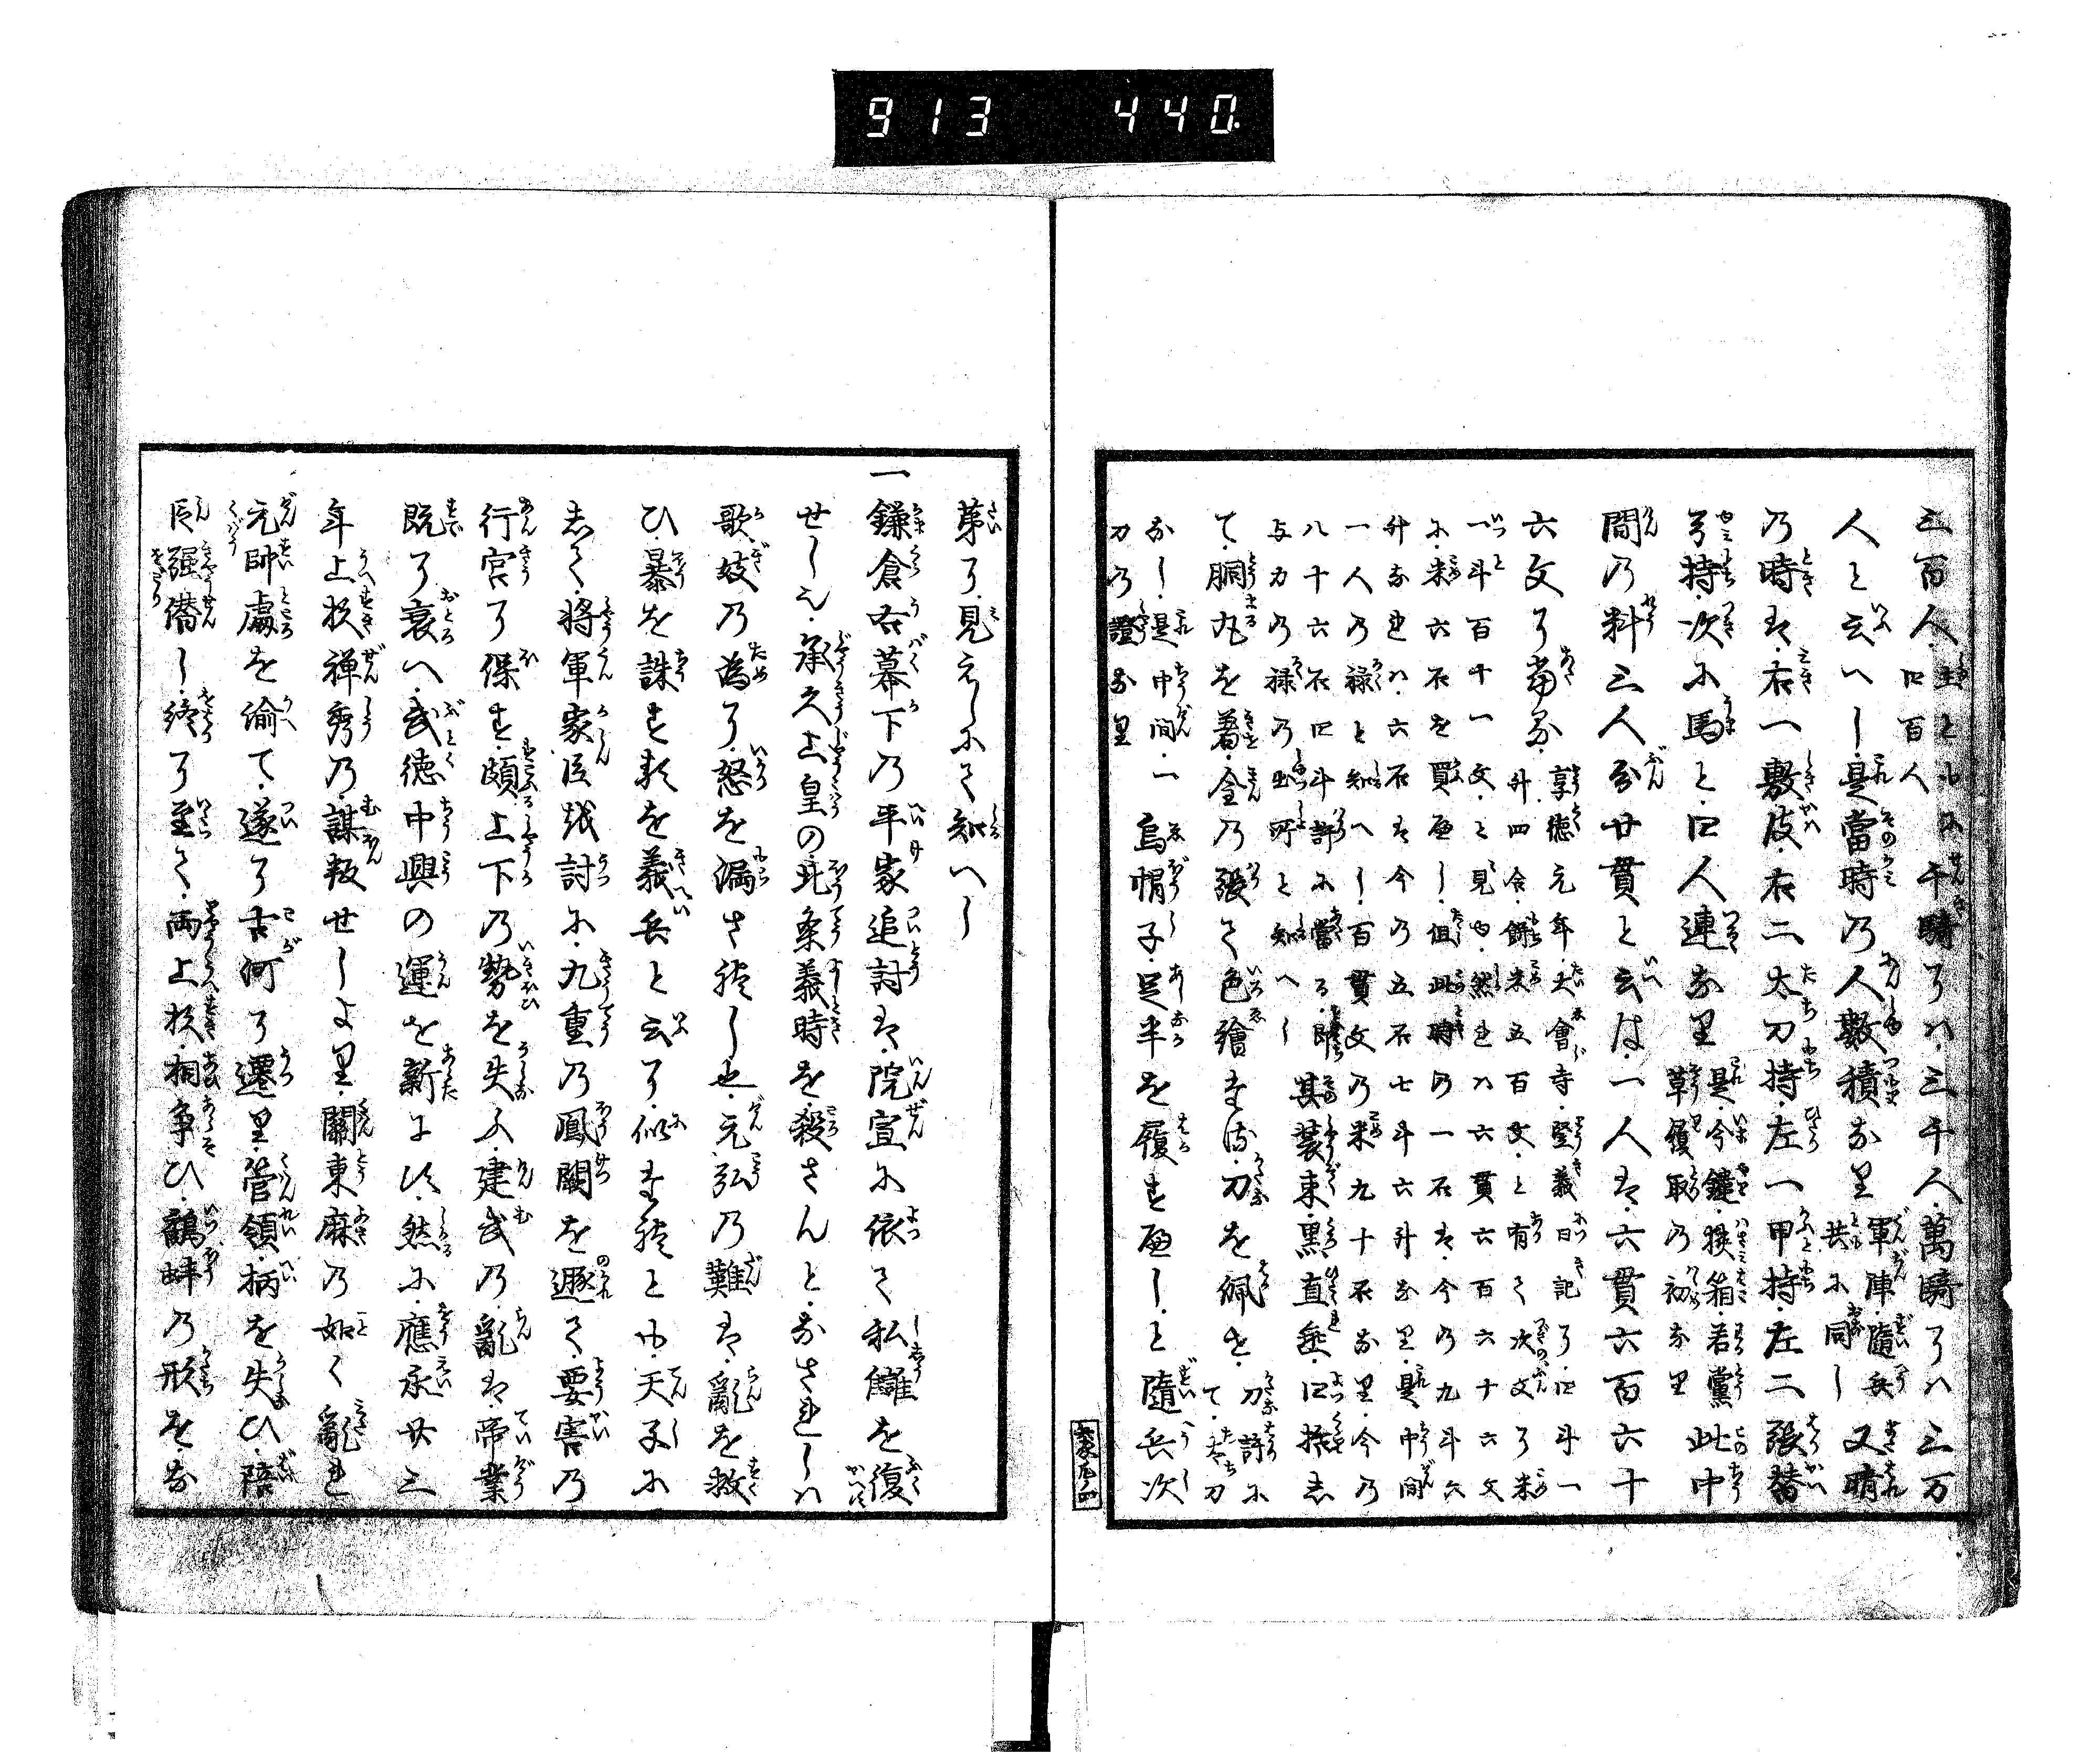 913 440.
三百人・主ともに千騎にハ三千人・萬騎にハ三万
四百人
人と云へし・是當時の人数積なり 軍陣・隨兵 共に同し 又晴
の時は・右一敷皮・右二太刀持・左一甲持・左二張替
弓持・次に馬と・四人連なり 是・今鑓・狭箱・若黨 草履取の初なり 此中
間の料三人分廿貫と云は・一人は・六貫六百六十
六文に當る・享徳元年・大會寺・堅義日記に・四斗一
升四合・餅米五百文・と有て次文に米
一斗百十一文・と見ゆ・然れハ六貫六百六十六文
に・米六石を買へし・但此時の一石は・今の九斗六
升なれハ・六石は今の五石七斗六升なり・是中間
一人の禄と知へし・百貫文の米九十石なり・今の
八十六石四斗許に當る・即其装束・黒直垂・四撓し
与力の禄の出所と知へし
て・胴丸を着・金の張て色繪する・刀を佩き・刀許に て・太刀
なし・是中間・一 烏帽子・足半を履き可し・と隨兵次
刀の證なり
兵家尾ノ四
第に見えしにて知へし
一鎌倉右幕下の平家追討は・院宣に依て私讎を復
せしを・承久上皇の北条義時を・殺さんと・なされしハ
歌妓の為に・怒を漏さ禮し也・元弘の難は・亂を救
ひ・暴を誅する義兵と云に・似る禮とも・天子に
志て・將軍家臣越討に・九重の鳳闕を遯て・要害の
行宮に保き・頗上下の勢を失ふ・建武の亂は・帝業
既に衰へ・武徳中興の運を新にに・然に・應永廿三
年上杦禅秀の・謀叛せしより・關東麻の如く亂れ
元帥處を渝て・遂に古河に遷り・管領・柄を失ひ・陪
臣强僭し・終に至て・両上杦・相争ひ・鷸蚌の形を・な